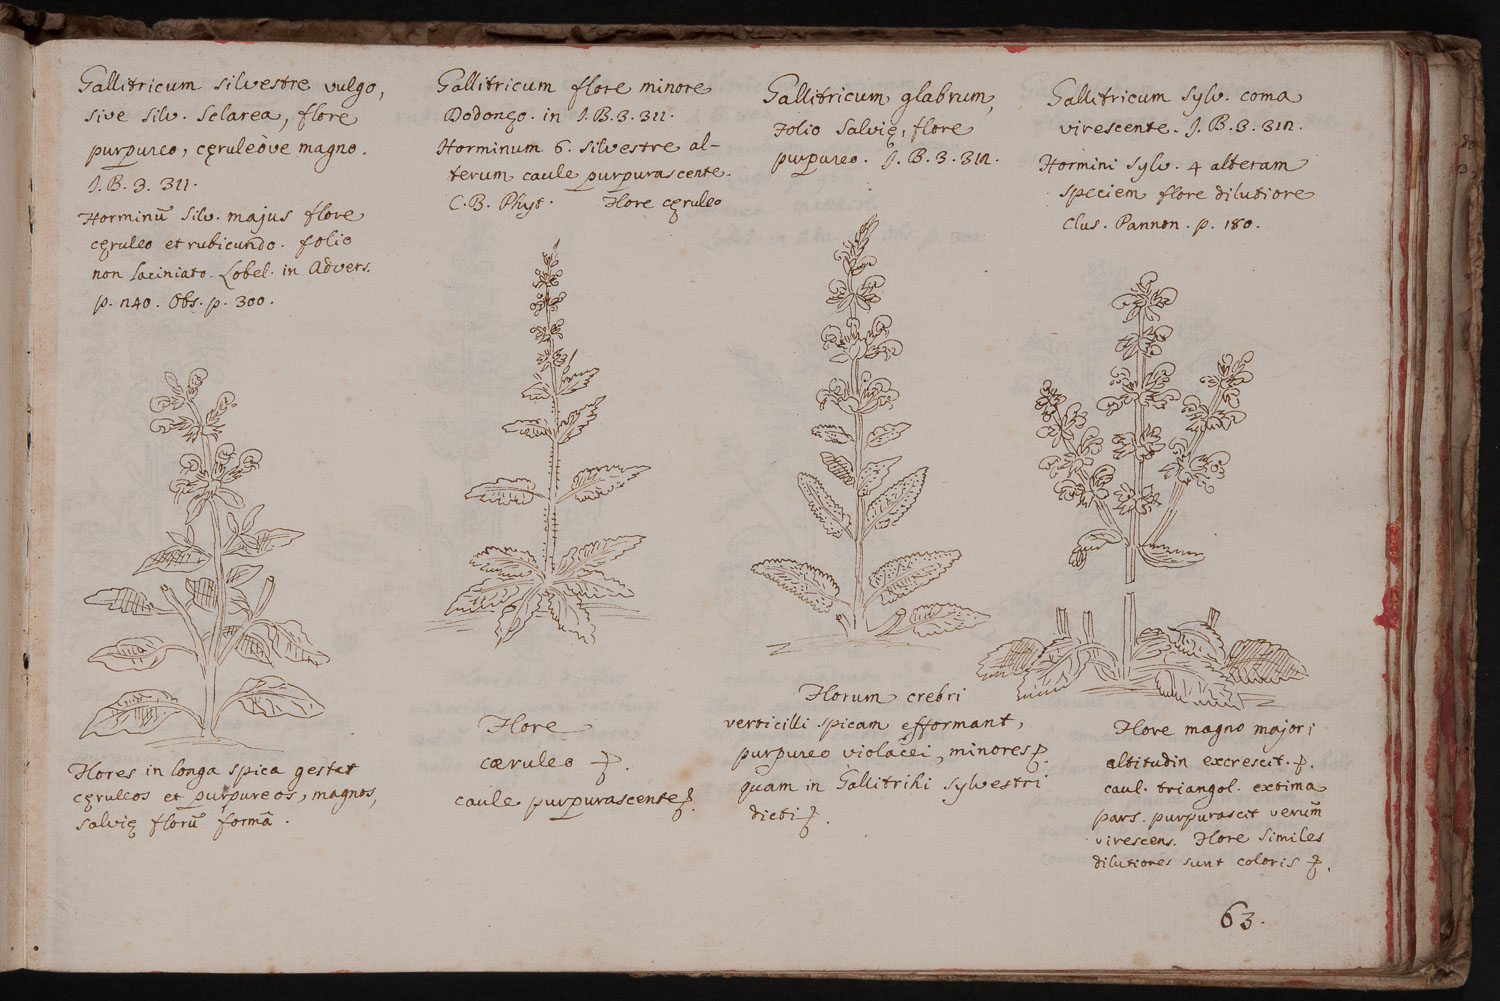 Gallitricum silvestre vulgo,
sive silv. Sclarea, flore
purpureo, cęruleòve magno.
J. B. 3. 311.
Horminū silv. majus flore
cęruleo et rubicundo. folio
non laciniato. Lobel. in Advers.
p. 240. Obs. p. 300.
Gallitricum flore minore
Dodonęo. in J. B. 3. 311.
Horminum 6. silvestre al-
terum caule purpurascente.
C. B. Phyt. Flore cęruleo
Gallitricum glabrum,
folio Salvię, flore
purpureo. J. B. 3. 312.
Gallitricum sylv. coma
virescente. J. B. 3. 312.
Hormini sylv. 4 alteram
speciem flore dilutiore
Clus. Pannon. p. 180.
Flores in longa spica gestat
cęruleos et purpureos, magnos,
salvię florū formā.
Flore
cæruleo
caule purpurascente
Florum crebri
verticilli spicam efformant,
purpureo violacei, minores
quam in Gallitrihi sylvestri
dicti
Flore magno majori
altitudin excrescit.
caul. triangol. extima
pars. purpurascit verūm
virescens. Flore similes
dilutiores sunt coloris
63.